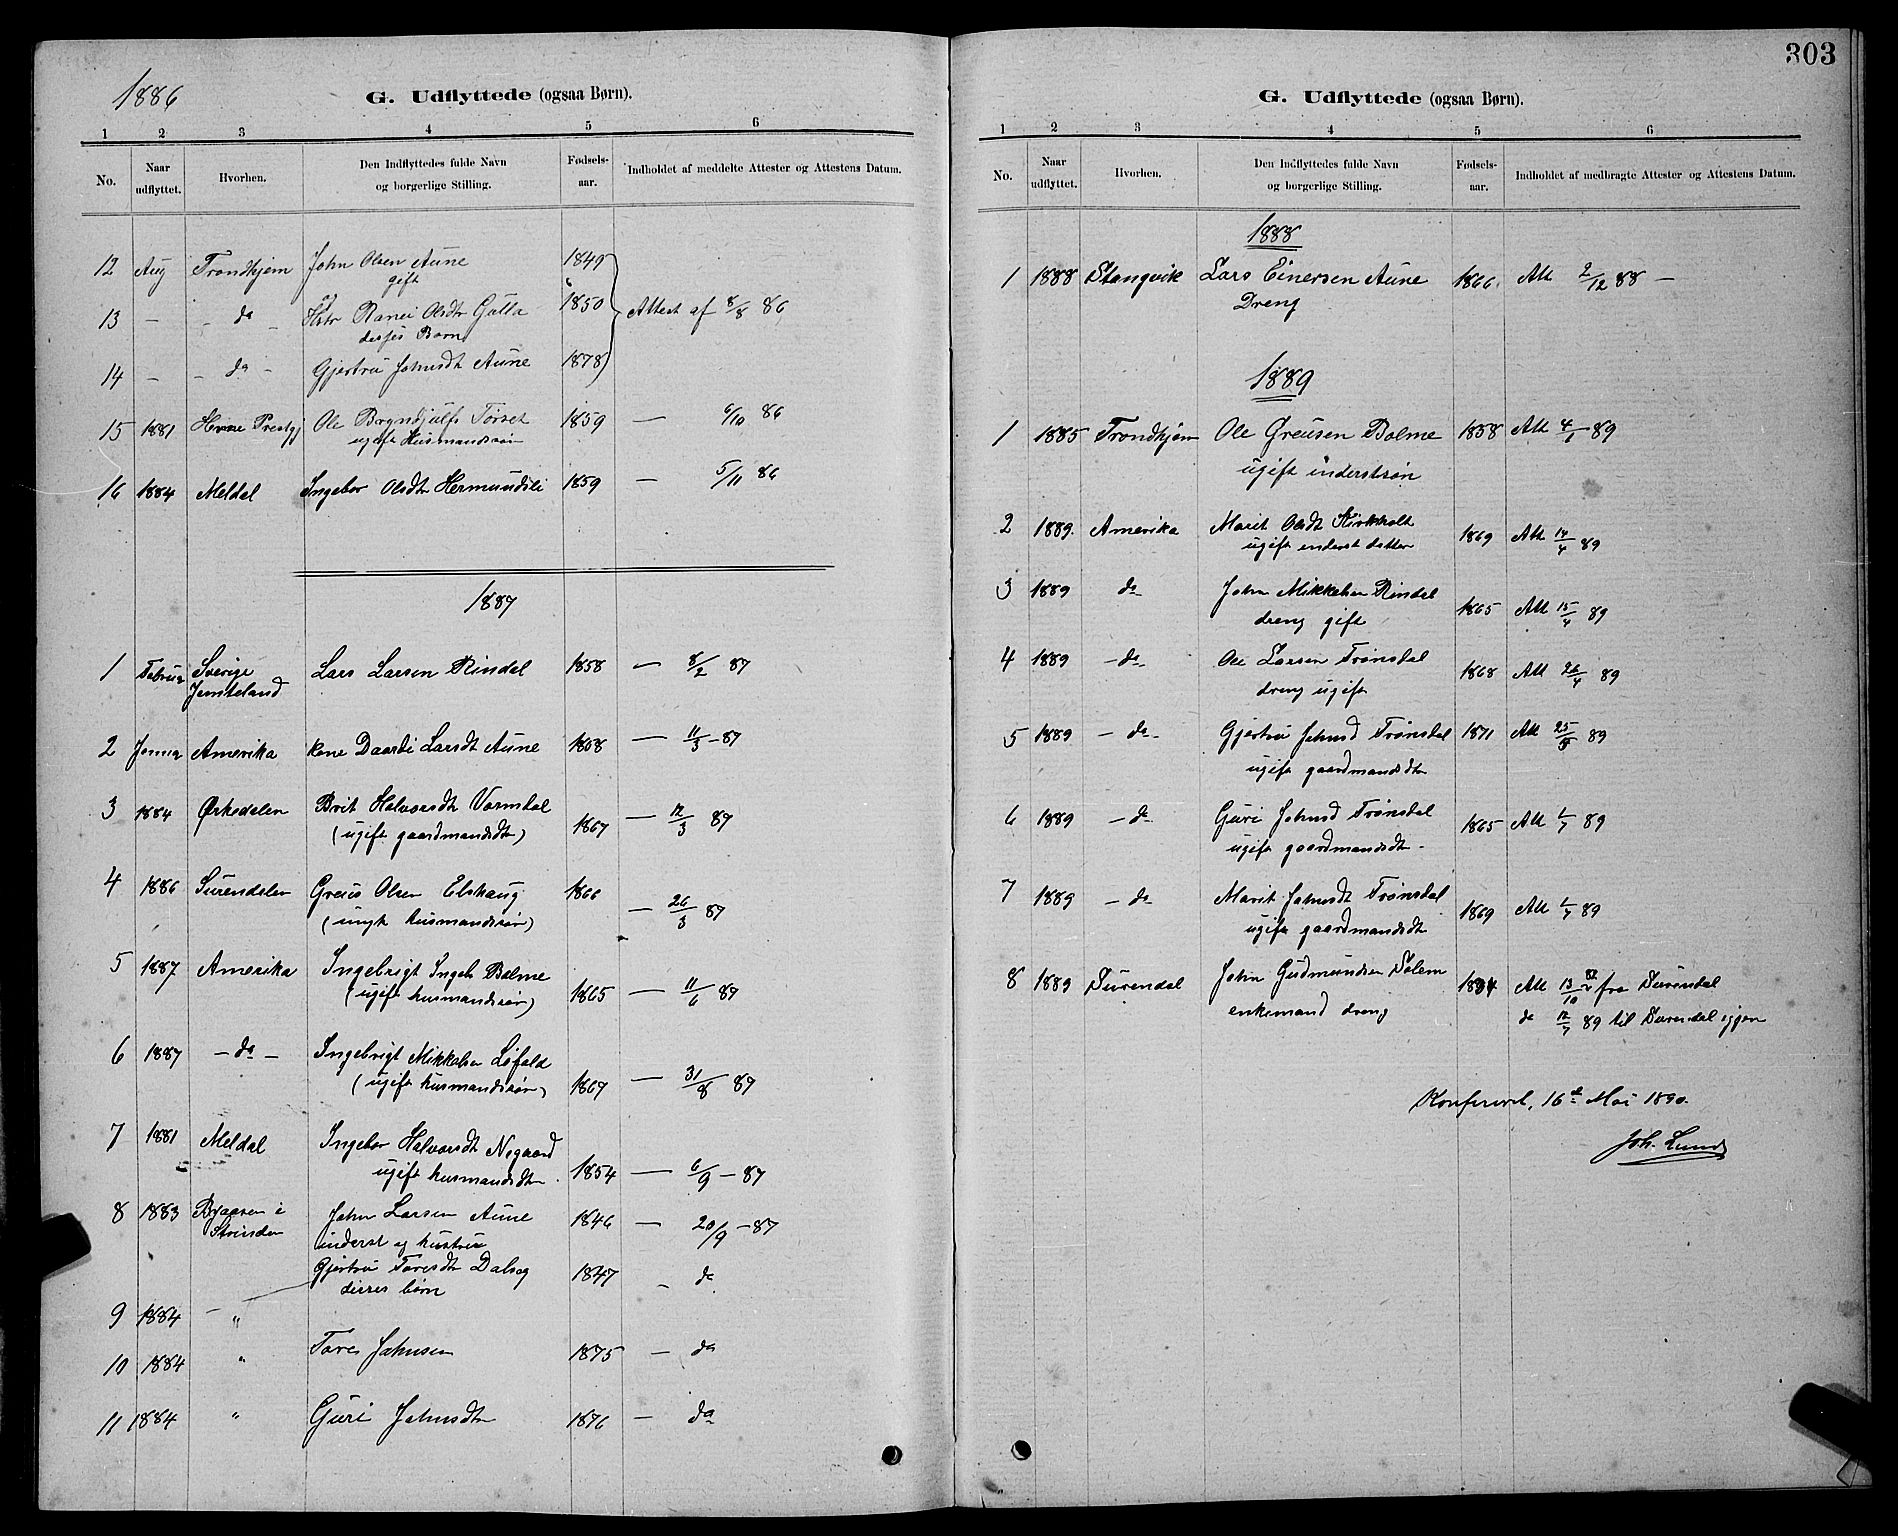 1886
G. Udflyttede (ogsaa Børn).
1 2 3 4 5 6
No. Naar udflyttet. Hvorhen. Den Indflyttedes fulde Navn og borgerlige Stilling. Fødsels-aar. Indholdet af meddelte Attester og Attestens Datum.
12 Aug Trondhjem John Olsen Aune 1849
gift
13 — - da - Ranei Olsdtr Gulla 1850 Attest af 8/8 86
deres Barn
14 — - da - Gjertru Johnsdt Aune 1878
15 1881 Hevne Prestgj Ole Bryndjulfs Tørset 1859 — 6/10 86
ugift Husmandssøn
16 1884 Meldal Ingebor Olsdtr Hermundsli 1859 — 5/11 86
1887
1 Februar Sverige Lars Larsen Rindal 1858 — 8/2 87
Jemteland
2 Amerika kone Daardi Larsdt Aune 1808 — 11/3 - 87
3 1884 Ørkedalen Brit Halvorsdt Vormdal
(ugift gaardmandsdtr) 1867 — 12/3 87
4 1886 Surendalen Greus Olsen Elshaug 1866
(ungk husmandssøn) — 26/3 87
5 1887 Amerika Ingebrigt Ingebr Bolme
(ugift husmandssøn) 1865 — 11/6 87
6 1887 - da - Ingebrigt Mikkelsen Løfald
(ugift husmandssøn) 1867 — 31/8 87
7 1881 Meldal Ingebor Halvorsdt Negaard
ugift husmandsdtr 1854 — 6/9 - 87
8 1883 Braaren i John Larsen Aune 1846 — 20/9 - 87
Strinden inderst og hustru
Gjertru Toresdtr Dalseg 1847 - da
deres børn
9 1884 — "
10 1884 " Tore Johnsen 1875 — da
11 1884 " Guri Johnsdtr 1876 — da
303
G. Udflyttede (ogsaa Børn).
1 2 3 4 5 6
No. Naar udflyttet. Hvorhen. Den Indflyttedes fulde Navn og borgerlige Stilling. Fødsels-aar. Indholdet af medbragte Attester og Attestens Datum.
1888
1 1888 Stangvik Lars Einersen Aune 1866 Att 2/12 88 —
Dreng
1889
1 1885 Trondhjem Ole Greusen Bolme 1858 Att 4/1 89
ugift inderstsøn
2 1889. Amerika Marit Olsdt Kirkholt
ugift inderst datter 1869 Att 14/4 89
3 1889 da John Mikkelsen Rindal
dreng gift 1865 Att 15/4 89
4 1889 - da - Ole Larsen Trønsdal
dreng ugift 1868 Att 26/4 89
5 1889 - da - Gjertru Johnsd Trønsdal 1871 Att 25/5 89
ugift gaardmandsdtr
6 1889 - da - Guri Johnsd Trønsdal
ugift gaardmandsdtr 1865 Att 1/7 89
7 1889 - da - Marit Johnsdt Trønsdal
ugift gaardmandsdtr 1869 Att 1/7 89
8 1889 Surendal John Gudmundsen Solem 1834 Att 13/10 fra Surendal
enkemand dreng da 12/7 89 til Surendal igjen
Konfereret, 16de Mai 1890.
Joh. Lund